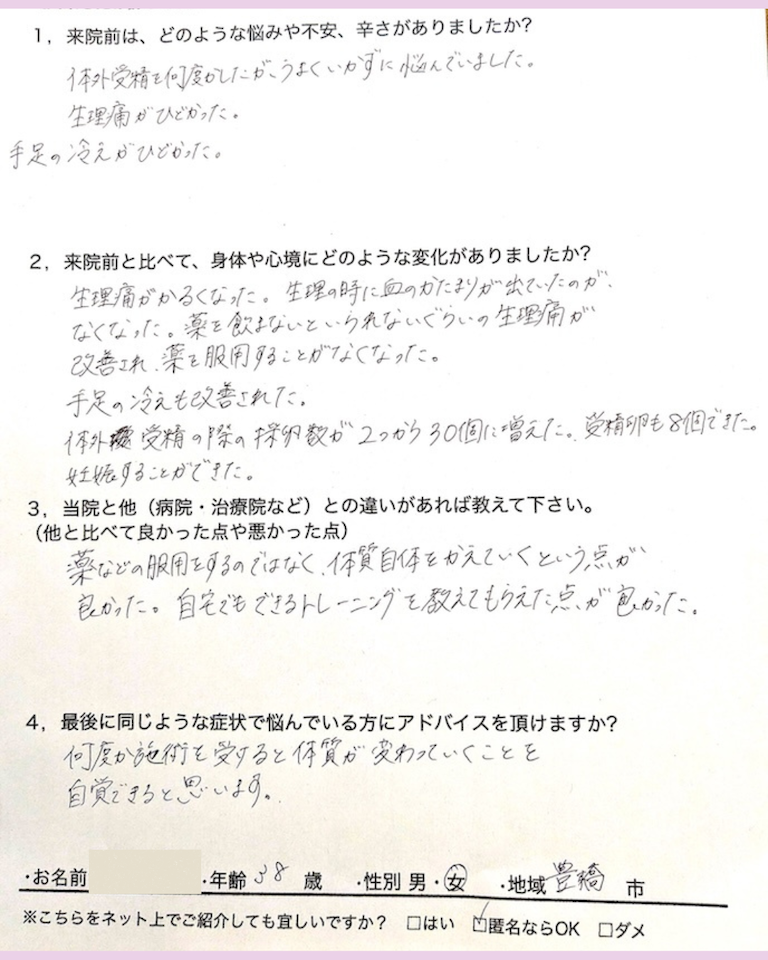 1，来院前は、どのような悩みや不安、辛さがありましたか?
体外受精を何度かしたが、うまくいかずに悩んでいました。
生理痛がひどかった。
手足の冷えがひどかった。
2，来院前と比べて、身体や心境にどのような変化がありましたか?
生理痛がかるくなった。生理の時に血のかたまりが出ていたのが、
なくなった。薬を飲まないといられないぐらいの生理痛が
改善され、薬を服用することがなくなった。
手足の冷えも改善された。
体外受精の際の採卵数が2つから30個に増えた。受精卵も8個できた。
妊娠することができた。
3，当院と他（病院・治療院など）との違いがあれば教えて下さい。
（他と比べて良かった点や悪かった点）
薬などの服用をするのではなく、体質自体をかえていくという点が
良かった。自宅でもできるトレーニングを教えてもらえた点が良かった。
4，最後に同じような症状で悩んでいる方にアドバイスを頂けますか?
何度か施術を受けると体質が変わっていくことを
自覚できると思います。
・お名前 ・年齢 38 歳 ・性別 男・女 ・地域 豊橋 市
※こちらをネット上でご紹介しても宜しいですか? □はい ☑匿名ならOK □ダメ